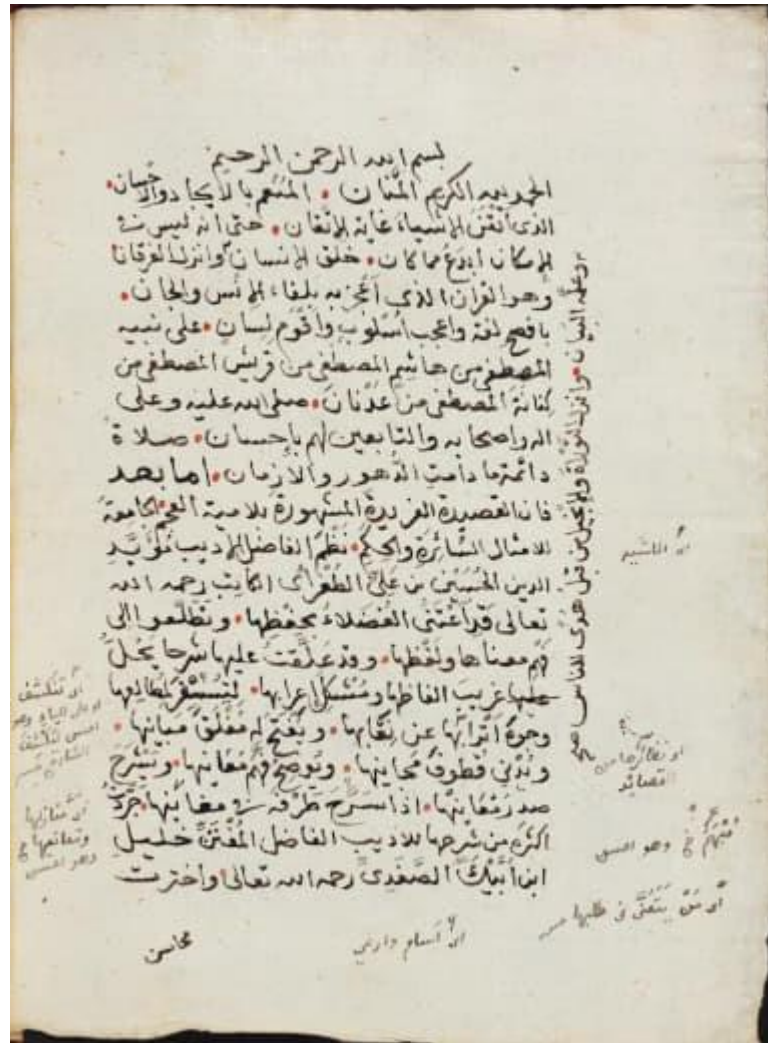 بسم الله الرحمن الرحيم
الحمد لله الكريم المنان • المنعم بالايجاد والاحسان •
الذى أتقن الاشياء غاية الاتقان • حتى انه ليس فى
الامكان ابدع مما كان • خلق الانسان وانزل الفرقان
وهو القرآن الذى أعجز به بلغاء الانس والجان •
بافصح لغة واعجب اسلوب واقوم لسان • على نبيه
المصطفى من هاشم المصطفى من قريش المصطفى من
كنانة المصطفى من عدنان • صلى الله عليه وعلى
اله واصحابه والتابعين لهم باحسان • صلاة
دائمة ما دامت الدهور والازمان • اما بعد
فان القصيدة الفريدة المشهورة بلامية العجم الجامعة
للامثال السائرة والحكم • نظم الفاضل الاديب مؤيد
الدين الحسين بن على الطغرائى الكاتب رحمه الله
تعالى قد اعتنى الفضلاء بحفظها • وتطلعوا الى
فهم معناها ولفظها • وقد علقت عليها شرحا يحل
غريب الفاظها ومشكل اعرابها • لتسفر لمطالعها
وجوه اترابها عن نقابها • ويفتح له مغلق مبانيها •
وتدنى قطوف مجانيها • وتوضح فهم معانيها • ويشرح
صدر معانيها • اذا سرح طرفه فى مغانيها • جردت
اكثره من شرحها للاديب الفاضل المفتن خليل
ابن أيبك الصفدى رحمه الله تعالى واخترت
محاسن
وعلمه البيان • وانزل التوراة والانجيل من قبل هدى للناس صح
اى تنكشف
وهو احسن
اى منازلها
وهو احسن
اى نظائرها من
القصائد
وهو احسن
اى من يتعنى فى طلبها